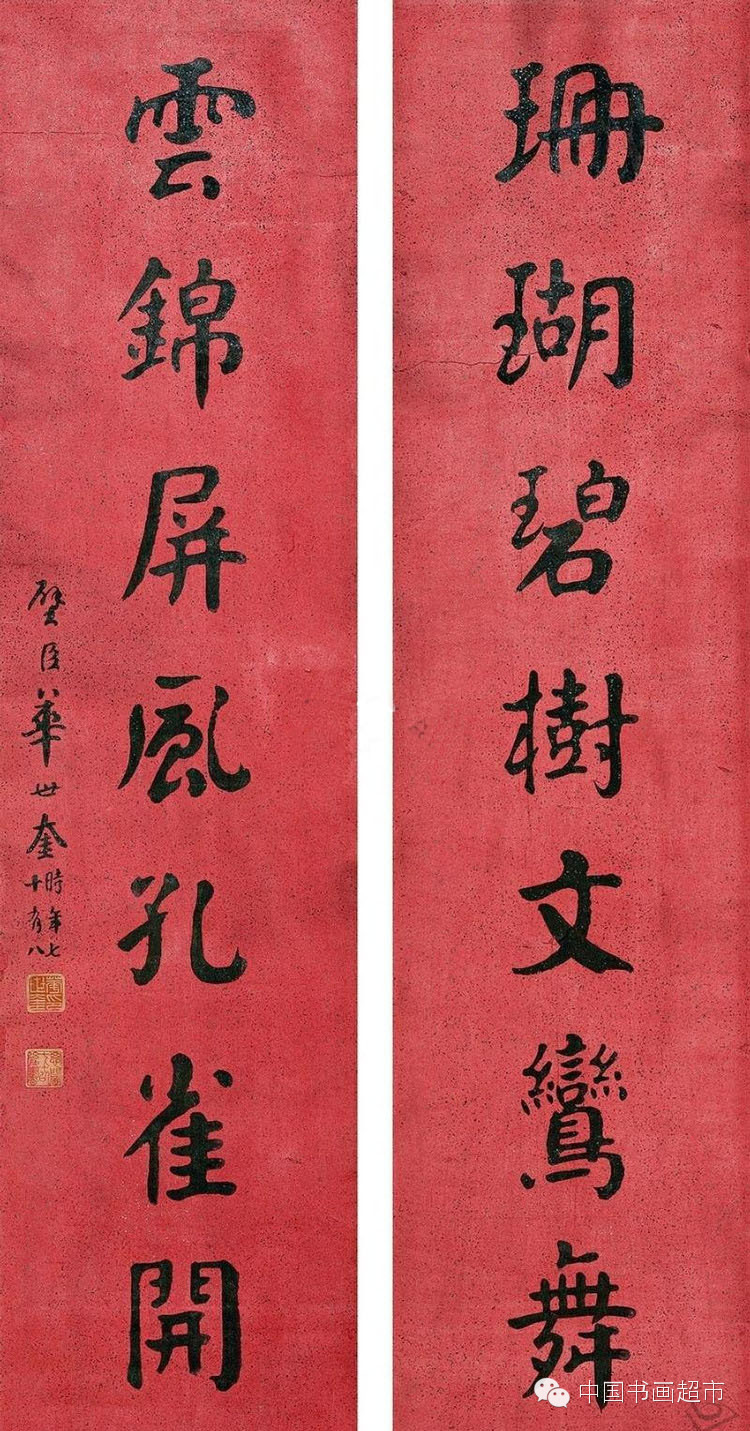 珊瑚碧樹文鸞舞
雲錦屏風孔雀開
璧臣華世奎時年七
十有八
中国书画超市